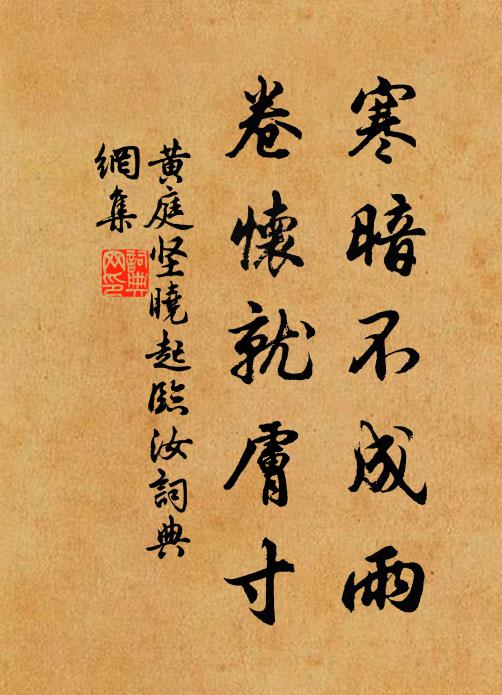 寒暗不成雨
卷懷就膚寸
黄庭坚曉起臨汝詞典
網集
詞典
网印